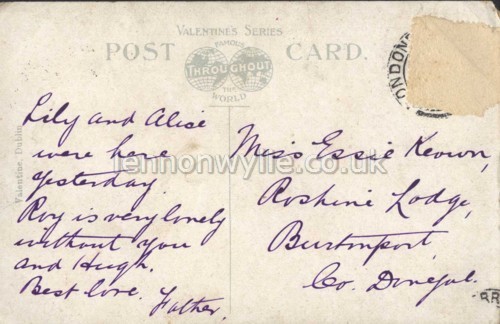 Valentines Series
POST CARD.
FAMOUS
THROUGHOUT
THE
WORLD
Valentine, Dublin
Lily and Alise
were here
yesterday.
Roy is very lonely
without you
and Hugh.
Best love.
Father.
Miss Essie Keown,
Roshine Lodge,
Burtonport,
Co. Donegal.
lennonwylie.co.uk